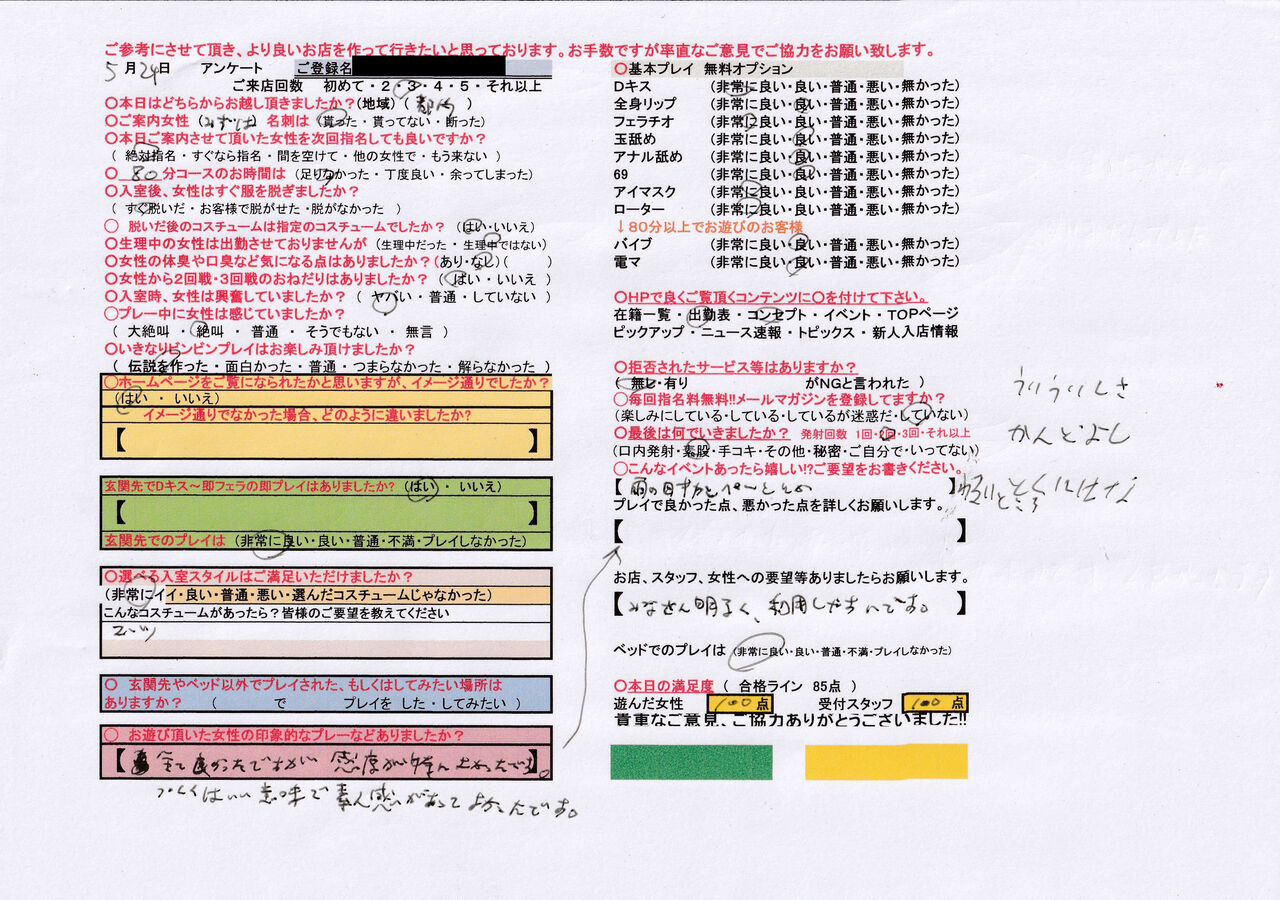 ご参考にさせて頂き、より良いお店を作って行きたいと思っております。お手数ですが率直なご意見でご協力をお願い致します。
5月24日 アンケート ご登録名
ご来店回数 初めて・2・3・4・5・それ以上
〇本日はどちらからお越し頂きましたか?(地域)(都内)
〇ご案内女性 (みずほ) 名刺は (貰った・貰ってない・断った)
〇本日ご案内させて頂いた女性を次回指名しても良いですか?
( 絶対指名・すぐなら指名・間を空けて・他の女性で・もう来ない )
〇 80 分コースのお時間は (足りなかった・丁度良い・余ってしまった)
〇入室後、女性はすぐ服を脱ぎましたか?
( すぐ脱いだ・お客様で脱がせた・脱がなかった )
〇 脱いだ後のコスチュームは指定のコスチュームでしたか? (はい・いいえ)
〇生理中の女性は出勤させておりませんが (生理中だった・生理中ではない)
〇女性の体臭や口臭など気になる点はありましたか?(あり・なし)( )
〇女性から2回戦・3回戦のおねだりはありましたか? ( はい・いいえ )
〇入室時、女性は興奮していましたか? ( ヤバい・普通・していない )
〇プレー中に女性は感じていましたか?
( 大絶叫 ・ 絶叫 ・ 普通 ・ そうでもない ・ 無言 )
〇いきなりビンビンプレイはお楽しみ頂けましたか?
( 伝説を作った・面白かった・普通・つまらなかった・解らなかった )
〇ホームページをご覧になられたかと思いますが、イメージ通りでしたか?
(はい ・ いいえ)
イメージ通りでなかった場合、どのように違いましたか?
【 】
玄関先でDキス～即フェラの即プレイはありましたか? (はい ・ いいえ)
【 】
玄関先でのプレイは (非常に良い・良い・普通・不満・プレイしなかった)
〇選べる入室スタイルはご満足いただけましたか?
(非常にイイ・良い・普通・悪い・選んだコスチュームじゃなかった)
こんなコスチュームがあったら?皆様のご要望を教えてください
〇 玄関先やベッド以外でプレイされた、もしくはしてみたい場所は
ありますか? ( で プレイを した・してみたい )
〇 お遊び頂いた女性の印象的なプレーなどありましたか?
【 全て良かったですが 感度が 良かったです。】
いい意味で素人感があってよかったです。
〇基本プレイ 無料オプション
Dキス (非常に良い・良い・普通・悪い・無かった)
全身リップ (非常に良い・良い・普通・悪い・無かった)
フェラチオ (非常に良い・良い・普通・悪い・無かった)
玉舐め (非常に良い・良い・普通・悪い・無かった)
アナル舐め (非常に良い・良い・普通・悪い・無かった)
69 (非常に良い・良い・普通・悪い・無かった)
アイマスク (非常に良い・良い・普通・悪い・無かった)
ローター (非常に良い・良い・普通・悪い・無かった)
↓80分以上でお遊びのお客様
バイブ (非常に良い・良い・普通・悪い・無かった)
電マ (非常に良い・良い・普通・悪い・無かった)
〇HPで良くご覧頂くコンテンツに〇を付けて下さい。
在籍一覧・出勤表・コンセプト・イベント・TOPページ
ピックアップ・ニュース速報・トピックス・新人入店情報
〇拒否されたサービス等はありますか?
( 無し・有り がNGと言われた )
〇毎回指名料無料!!メールマガジンを登録してますか?
(楽しみにしている・している・しているが迷惑だ・していない)
〇最後は何でいきましたか? 発射回数 1回・2回・3回・それ以上
(口内発射・素股・手コキ・その他・秘密・ご自分で・いってない)
〇こんなイベントあったら嬉しい!?ご要望をお書きください。
【雨の日 】
プレイで良かった点、悪かった点を詳しくお願いします。
【 】
ういういしさ
かんどよし
お店、スタッフ、女性への要望等ありましたらお願いします。
【みなさん明るく、利用しやすいです。】
ベッドでのプレイは (非常に良い・良い・普通・不満・プレイしなかった)
〇本日の満足度 ( 合格ライン 85点 )
遊んだ女性 100 点 受付スタッフ 100 点
貴重なご意見、ご協力ありがとうございました!!